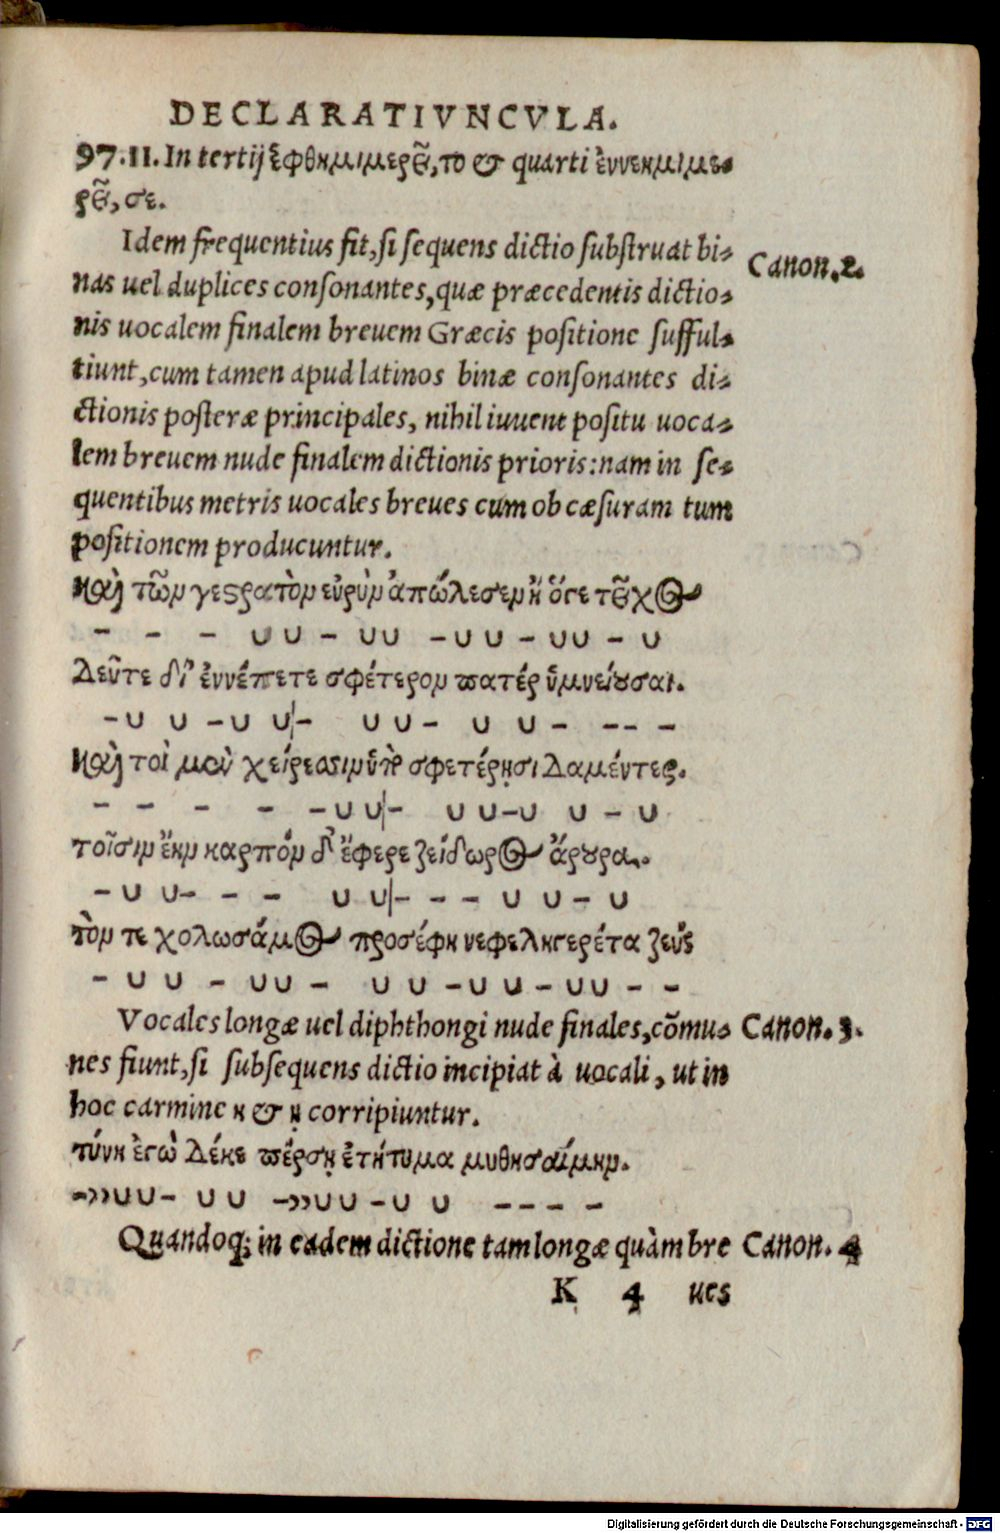 DECLARATIVNCVLA.
97.II. In tertij ἑφθημιμεροῦ, το & quarti ἐννεημιμε-
ροῦ, σε.
Idem frequentius fit, si sequens dictio substruat bi- Canon.2.
nas uel duplices consonantes, quæ præcedentis dictio-
nis uocalem finalem breuem Græcis positione sufful-
tiunt, cum tamen apud latinos binæ consonantes di-
ctionis posteræ principales, nihil iuuent positu uoca-
lem breuem nude finalem dictionis prioris: nam in se-
quentibus metris uocales breues cum ob cæsuram tum
positionem producuntur.
καὶ τῶν γε στρατὸν εὐρὺν ἀπώλεσεν ἤ ὅγε τοῦχος
– – – ∪ ∪ – ∪∪ – ∪ ∪ – ∪∪ – ∪
Δεῦτε δι᾽ ἐννέπετε σφέτερον πατέρ ὑμνείουσαι.
– ∪ ∪ – ∪ ∪|– ∪ ∪ – ∪ ∪ – – – –
καὶ τοὶ μὲν χείρεσσιν ὑπὸ σφετέρῃσι Δαμέντες.
– – – – – ∪ ∪|– ∪ ∪ – ∪ ∪ – ∪
τοῖσιν ἔην καρπὸν δ᾽ ἔφερε ζείδωρος ἄρουρα.
– ∪ ∪ – – – ∪ ∪|– – – ∪ ∪ – ∪
τὸν τε χολωσάμενος προσέφη νεφεληγερέτα ζεύς
– ∪ ∪ – ∪∪ – ∪ ∪ – ∪ ∪ – ∪∪ – –
Vocales longæ uel diphthongi nude finales, cõmu- Canon. 3.
nes fiunt, si subsequens dictio incipiat à uocali, ut in
hoc carmine η & ῃ corripiuntur.
τύνη ἐγὼ Δέκε πέρσῃ ἐτήτυμα μυθησαίμην.
–»∪∪ – ∪ ∪ –»∪∪ – ∪ ∪ – – – –
Quandoq; in eadem dictione tam longæ quàm bre Canon. 4
K 4 ues
Digitalisierung gefördert durch die Deutsche Forschungsgemeinschaft - DFG